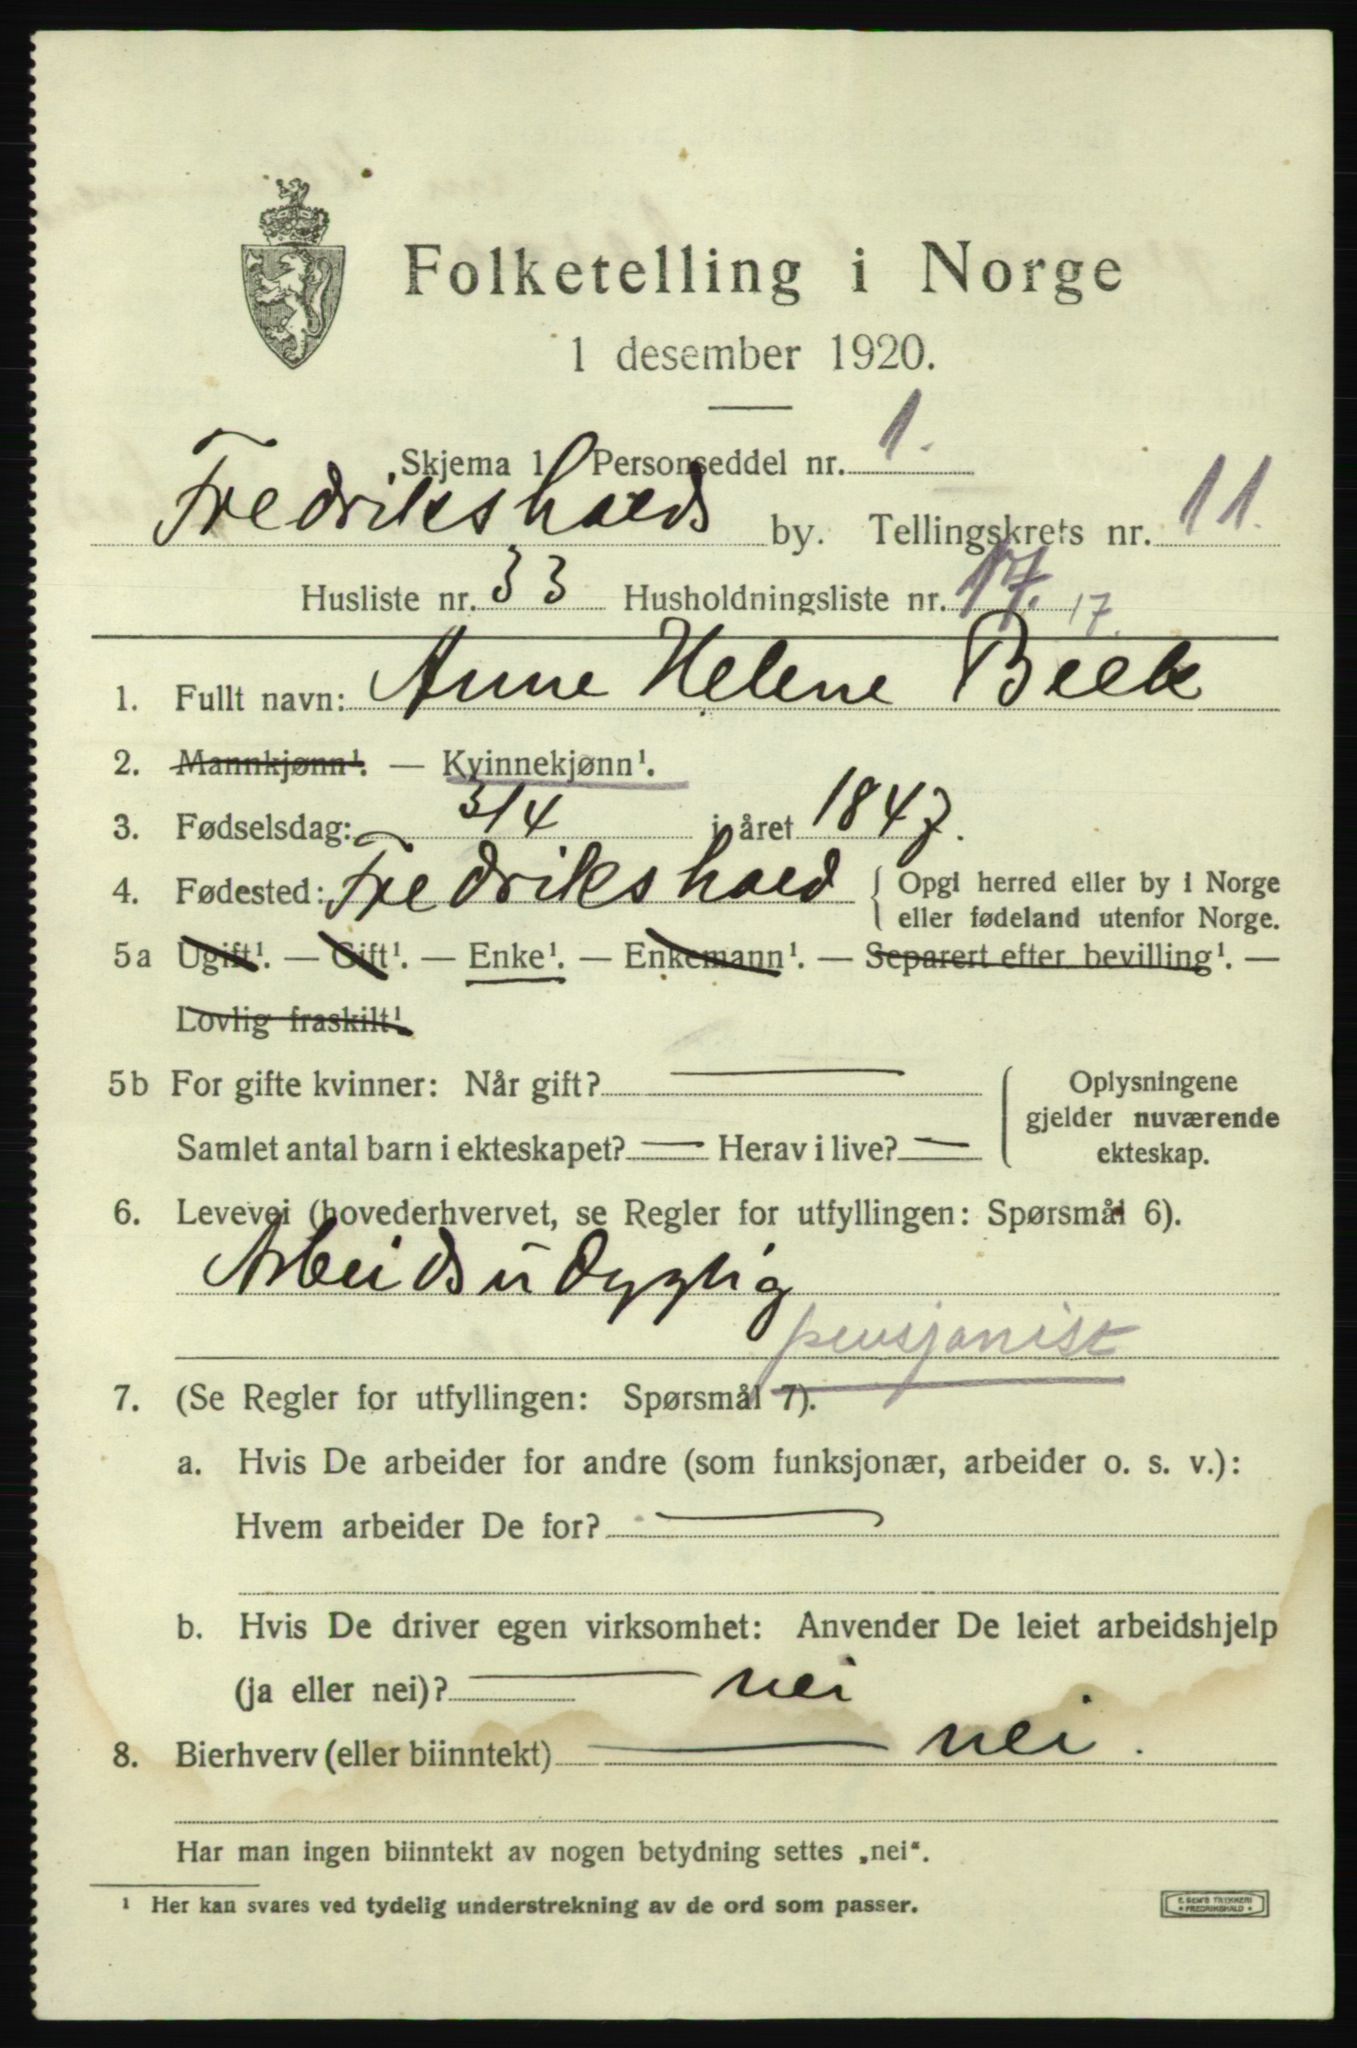 Folketelling i Norge
1 desember 1920.
Skjema 1 Personseddel nr. 1.
Fredrikshalds by. Tellingskrets nr. 11.
Husliste nr. 33 Husholdningsliste nr. 17. 17.
1. Fullt navn: Anne Helene Beck
2. Mannkjønn¹. — Kvinnekjønn¹.
3. Fødselsdag: 3/4 i året 1847.
4. Fødested: Fredrikshald { Opgi herred eller by i Norge
eller fødeland utenfor Norge.
5a Ugift¹. — Gift¹. — Enke¹. — Enkemann¹. — Separert efter bevilling¹. —
Lovlig fraskilt¹
5b For gifte kvinner: Når gift? — { Oplysningene
gjelder nuværende
ekteskap.
Samlet antal barn i ekteskapet? — Herav i live? —
6. Levevei (hovederhvervet, se Regler for utfyllingen: Spørsmål 6).
Arbeidsudygtig
pensjonist
7. (Se Regler for utfyllingen: Spørsmål 7).
a. Hvis De arbeider for andre (som funksjonær, arbeider o. s. v.):
Hvem arbeider De for? —
b. Hvis De driver egen virksomhet: Anvender De leiet arbeidshjelp
(ja eller nei)? — nei
8. Bierhverv (eller biinntekt) — nei.
Har man ingen biinntekt av nogen betydning settes „nei“.
¹ Her kan svares ved tydelig understrekning av de ord som passer.
E. SEM'S TRYKKERI
FREDRIKSHALD